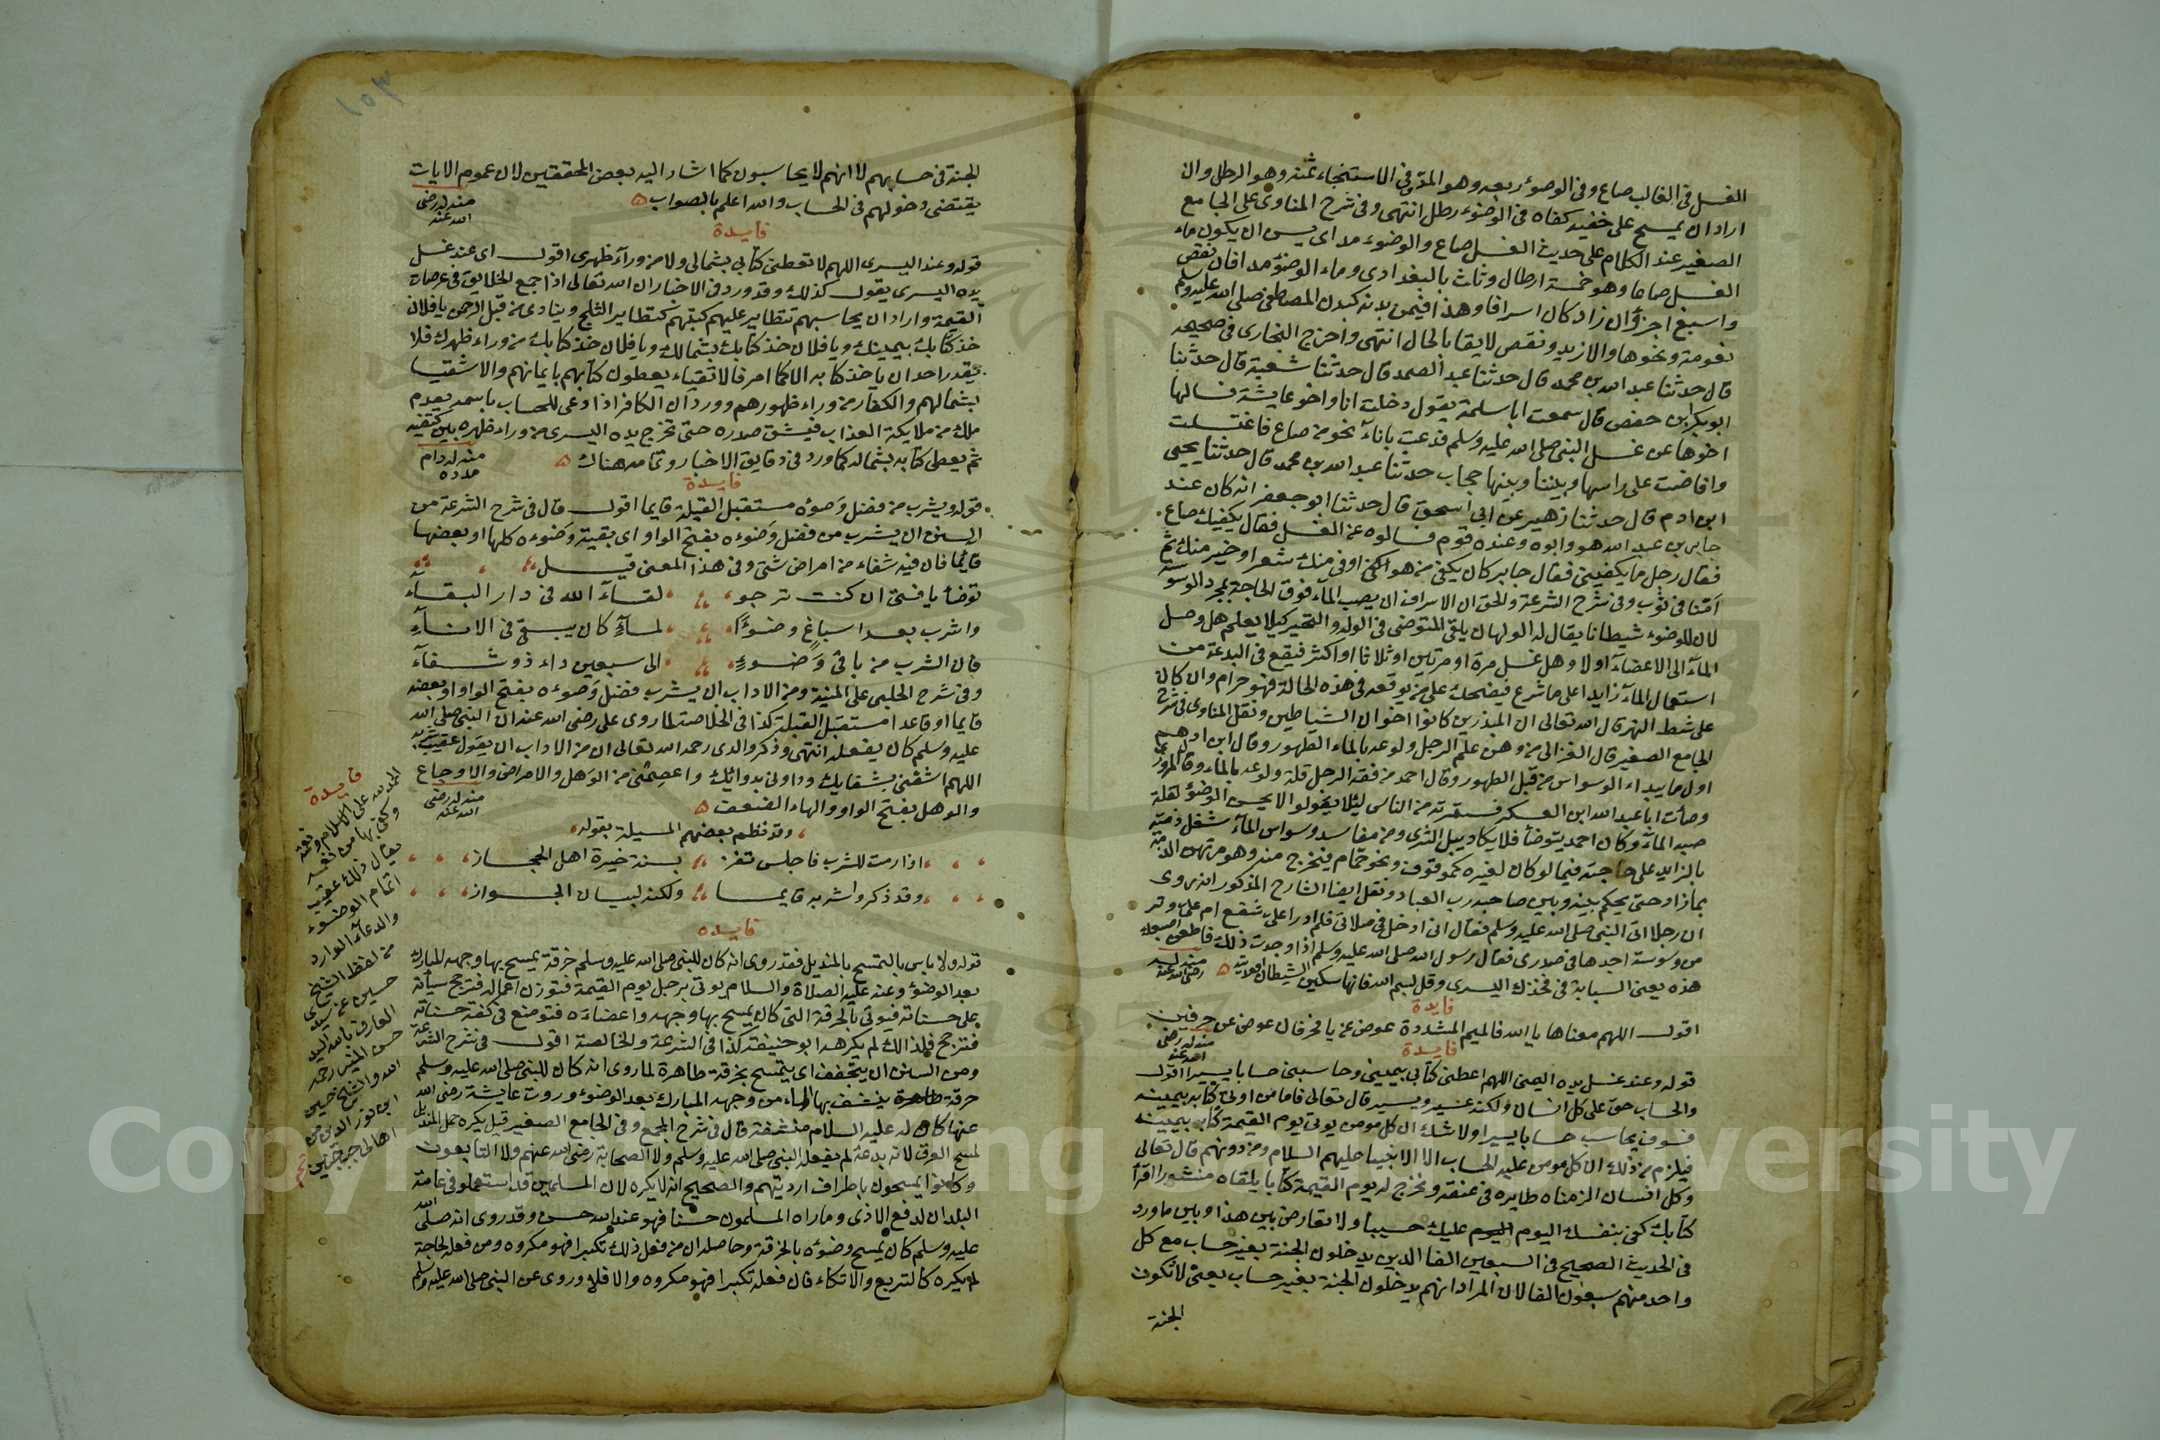 الغسل في الغالب صاع وفي الوضوء ربعه وهو المد وفي الاستنجاء ثمنه وهو الرطل وان
اراد ان يمسح على خفيه كفاه في الوضوء رطل انتهى وفي شرح المناوي على الجامع
الصغير عند الكلام على حديث الغسل صاع والوضوء مد اي يسن ان يكون ماء
الغسل صاعا وهو خمسة ارطال وثلث بالبغدادي وماء الوضوء مدا فان نقص
واسبغ اجزأ وان زاد كان اسرافا وهذا فيمن بدنه كبدن المصطفى صلى الله عليه وسلم
نعومة ونحوها والا زيد ونقص لايقا بالحال انتهى واخرج البخاري في صحيحه
قال حدثنا عبد الله بن محمد قال حدثنا عبد الصمد قال حدثنا شعبة قال حدثنا
ابو بكر ابن حفص قال سمعت ابا سلمة يقول دخلت انا واخو عايشة فسالها
اخوها عن غسل النبي صلى الله عليه وسلم فدعت باناء نحو من صاع فاغتسلت
وافاضت على راسها وبيننا وبينها حجاب حدثنا عبد الله بن محمد قال حدثنا يحيى
ابن ادم قال حدثنا زهير عن ابي اسحق قال حدثنا ابو جعفر انه كان عند
جابر بن عبد الله هو وابوه وعنده قوم فسالوه عن الغسل فقال يكفيك صاع
فقال رجل ما يكفيني فقال جابر كان يكفي من هو اوفى منك شعرا وخير منك ثم
امنا في ثوب وفي شرح الشرعة والحق ان الاسراف ان يصب الماء فوق الحاجة بمجرد الوسوسة
لان للوضوء شيطانا يقال له الولهان يلقي المتوضي في الوله والتحير كيلا يعلم هل وصل
الماء الى الاعضاء اولا وهل غسل مرة او مرتين او ثلاثا او اكثر فيقع في البدعة من
استعمال الماء زايدا على ما شرع فيضحك على من يوقعه في هذه الحالة فهو حرام وان كان
على شط النهر قال الله تعالى ان المبذرين كانوا اخوان الشياطين ونقل المناوي في شرح
الجامع الصغير قال الغزالي من وهن علم الرجل ولوعه بالماء الطهور وقال ابن ادهم
اول ما يبداء الوسواس من قبل الطهور وقال احمد من فقه الرجل قلة ولوعه بالماء وقال المروزي
وضأت ابا عبد الله ابن العسكر فسترته من الناس ليلا يقولوا لا يحسن الوضوء لقلة
صبه الماء وكان احمد يتوضأ فلا يكاد يبل الثرى ومن مفاسد وسواس الماء شغل ذمته
بالزايد على حاجته فيما لو كان لغيره كموقوف ونحو حمام فيخرج منه وهو مرتهن الذمة
بما زاد حتى يحكم بينه وبين صاحبه رب العباد ونقل ايضا الشارح المذكور انه روى
ان رجلا اتى النبي صلى الله عليه وسلم فقال اني ادخل في صلاتي فلم ادر اعلى شفع ام على وتر
من وسوسة اجدها في صدري فقال رسول الله صلى الله عليه وسلم اذا وجدت ذلك فاطعن اصبعك
هذه يعني السبابة في فخذك اليسرى وقل بسم الله فانها سكين الشيطان
منه له رضي الله عنه
فايدة
اقول اللهم معناها يا الله فالميم المشددة عوض عن يا فخرفان عوض عن حرفين
منه له رضي الله عنه
فايدة
قوله وعند غسل يده اليمنى اللهم اعطني كتابي بيميني وحاسبني حسابا يسيرا اقول
والحساب حق على كل انسان ولكنه عسير ويسير قال تعالى فاما من اوتي كتابه بيمينه
فسوف يحاسب حسابا يسيرا ولا شك ان كل مومن يوتى يوم القيمة كتابه بيمينه
فيلزم من ذلك ان كل مومن عليه الحساب الا الانبيا عليهم السلام ومن دونهم قال تعالى
وكل انسان الزمناه طايره في عنقه ونخرج له يوم القيمة كتابا يلقاه منشورا اقرأ
كتابك كفى بنفسك اليوم اليوم عليك حسيبا ولا تعارض بين هذا وبين ما ورد
في الحديث الصحيح في السبعين الفا الذين يدخلون الجنة بغير حساب مع كل
واحد منهم سبعون الفا لان المراد انهم يدخلون الجنة بغير حساب يعني لا تكون
الجنة
١٥٣
الجنة في حسابهم لا انهم لا يحاسبون كما اشار اليه بعض المحققين لان عموم الايات
يقتضي دخولهم في الحساب والله اعلم بالصواب
منه له رضي الله عنه
فايدة
قوله وعند اليسرى اللهم لا تعطني كتابي بشمالي ولا من ورآء ظهري اقول اي عند غسل
يده اليسرى يقول كذلك وقد ورد في الاخبار ان الله تعالى اذا جمع الخلايق في عرصات
القيمة واراد ان يحاسبهم تتطاير عليهم كتبهم كتطاير الثلج وينادى من قبل الرحمن يا فلان
خذ كتابك بيمينك ويا فلان خذ كتابك بشمالك ويا فلان خذ كتابك من وراء ظهرك فلا
يقدر احد ان ياخذ كتابه الا كما امر فالاتقياء يعطون كتابهم بايمانهم والاشقيا
بشمالهم والكفار من وراء ظهورهم وورد ان الكافر اذا دعى للحساب باسمه يقدم
ملك من ملايكة العذاب فيشق صدره حتى تخرج يده اليسرى من وراء ظهره بين كتفيه
ثم يعطى كتابه بشماله كما ورد في دقايق الاخبار وتمامه هناك
منه له دام مدده
فايدة
قوله ويشرب من فضل وضوئه مستقبل القبلة قايما اقول قال في شرح الشرعة من
السنن ان يشرب من فضل وضوءه بفتح الواو اي بقية وضوءه كلها او بعضها
قائما فان فيه شفاء من امراض شتى وفي هذا المعنى قيل
توضأ يا فتى ان كنت ترجو لقاء الله في دار البقاء
واشرب بعد اسباغ وضوءًا لماء كان يبقى في الاناء
فان الشرب من باقي وضوء الى سبعين داء ذو شفاء
وفي شرح الحلبي على المنية ومن الاداب ان يشرب فضل وضوءه بفتح الواو او بعضه
قايما او قاعدا مستقبل القبلة كذا في الخلاصة لما روى علي رضي الله عنه ان النبي صلى الله
عليه وسلم كان يفعله انتهى وذكر والدي رحمه الله تعالى ان من الاداب ان يقول عقيب شربه
اللهم اشفني بشفايك وداوني بدوائك واعصمني من الوهل والامراض والاوجاع
والوهل بفتح الواو والهاء الضعف
منه له رضي الله عنه
وقد نظم بعضهم المسيلة بقوله
اذا رمت للشرب فاجلس تفز بسنة خيرة اهل الحجاز
وقد ذكروا شربه قايما ولكنه لبيان الجواز
فايده
قوله ولا باس بالتمسح بالمنديل فقد روى انه كان للنبي صلى الله عليه وسلم خرقة يمسح بها وجهه المبارك
بعد الوضوء وعنه عليه الصلاة والسلام يوتى برجل يوم القيمة فتوزن اعماله فترجح سيأته
على حسناته فيوتى بالخرقة التي كان يمسح بها وجهه واعضاءه فتوضع في كفة حسناته
فترجح فلذالك لم يكرهه ابو حنيفة كذا في الشرعة والخالصة اقول في شرح الشرعة
ومن السنن ان يتجفف اي يتمسح بخرقة طاهرة لما روى انه كان للنبي صلى الله عليه وسلم
خرقة طاهرة ينشف بها الماء من وجهه المبارك بعد الوضوء وروت عايشة رضي الله
عنها كان له عليه السلام منشفة قال في شرح المجمع وفي الجامع الصغير قيل يكره حمل المنديل
لمسح العرق لانه بدعة لم يفعله النبي صلى الله عليه وسلم ولا الصحابة رضي الله عنهم ولا التابعون
وكانوا يمسحون باطراف ارديتهم والصحيح انه لا يكره لان المسلمين قد استعملوا في عامة
البلدان لدفع الاذى وما راه المسلمون حسنا فهو عند الله حسن وقد روى انه صلى الله
عليه وسلم كان يمسح وضوئه بالخرقة وحاصله ان من فعل ذلك تكبرا فهو مكروه ومن فعله لحاجة
لم يكره كالتربع والاتكاء فان فعله تكبرا فهو مكروه والا فلا وروى عن النبي صلى الله عليه وسلم
فايدة
الحمد لله على الاسلام ونعمة
وكفى بها من نعمة
يقال ذلك عقيب
اتمام الوضوء
والدعاء الوارد
من لفظ الشيخ
حسين عن سيدي
العارف بالله السيد
حسن المنير رحمه
الله والشيخ حسين
ابن نور الدين من
اهالي جب جنين
تم
Copyright © King University
1957